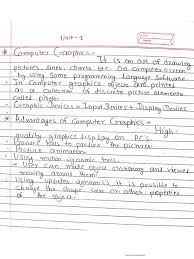 Unit - 1
* Computer Graphics -
It is an art of drawing
pictures, lines, charts etc. On Computer screen
by using Some programming language Software.
• In Computer graphics objects are printed
as a Collection of discrete picture elements
called pixels.
• Graphic Devices = Input Devices + Display Devices
* Advantages of Computer Graphics -
High
quality graphics display on PC's.
• Provides tools to produce the pictures.
• Produce animation
• Using motion dynamic tools.
• User can make object stationary and viewer
moving around them.
• Using updates dynamics it is possible to
change the shape, color or other properties
of the object.